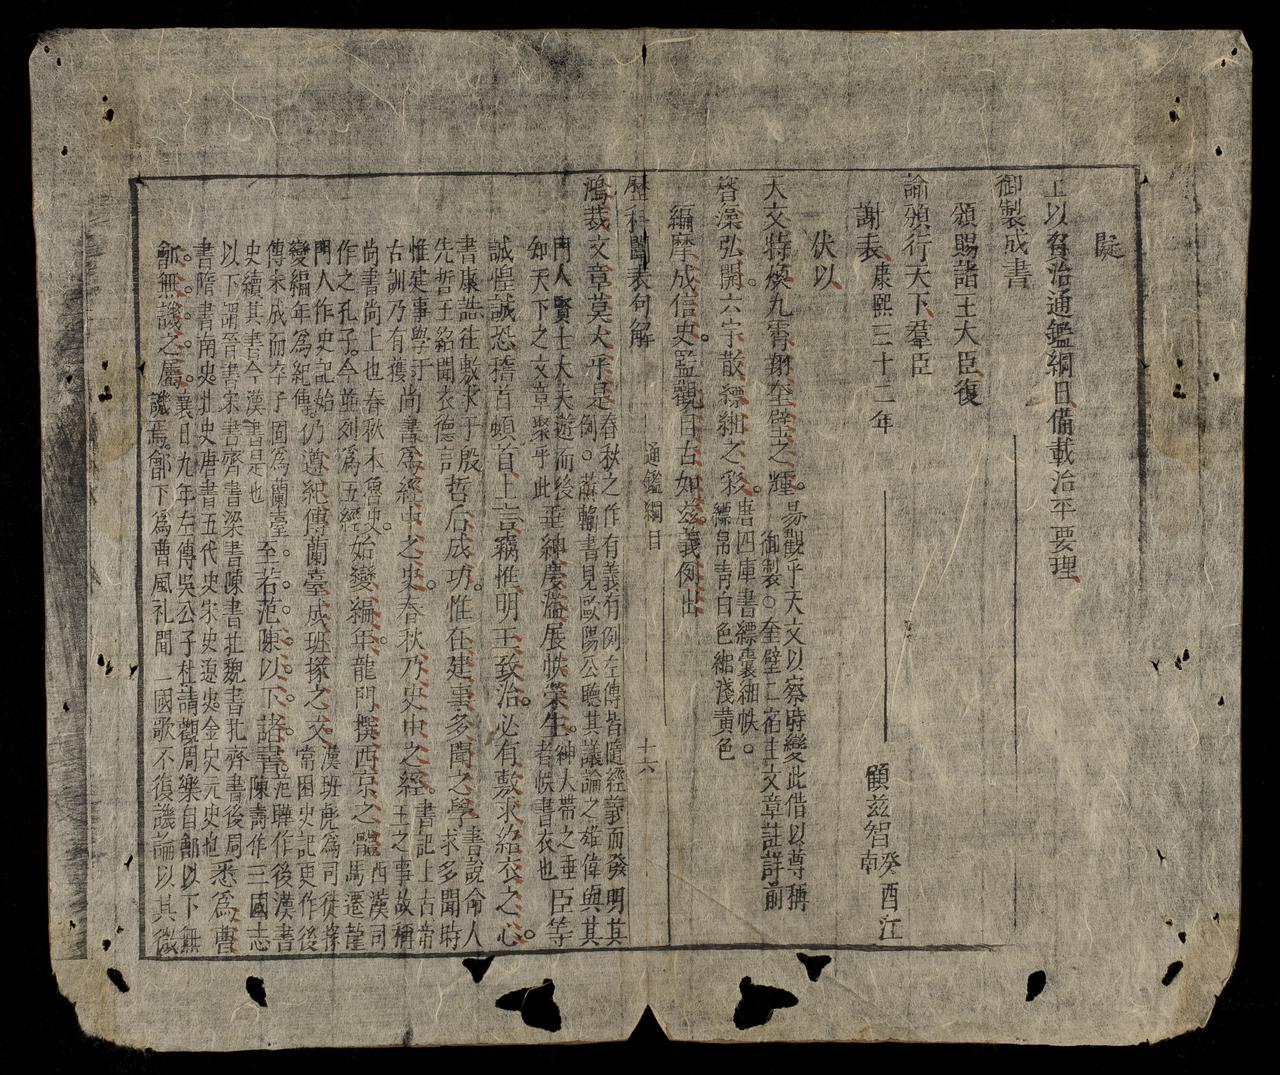 擬
上以資治通鑑綱目備載治平要理
御製成書
頒賜諸王大臣復
諭頒行天下羣臣
謝表康熙三十二年 顧茲智癸酉江南
伏以
天文特煥九霄翔奎璧之輝。易觀乎天文以察時變此借以尊稱御製○奎壁二宿主文章註詳前
睿藻弘開六宗散縹緗之彩。唐四庫書縹囊緗帙。縹帛青白色緗淺黃色
編摩成信史。監觀自古如茲。義例出
歷科閣表句解 通鑑綱目 十六
鴻裁文章莫大乎是春秋之作有義有例左傳皆隨經義而發明其例。蘇轍書見歐陽公聽其議論之雄偉與其
門人賢士大夫遊而後知天下之文章聚乎此垂紳慶溢展帙榮生。紳大帶之垂者帙書衣也臣等
誠惶誠恐稽首頓首上言竊惟明王致治。必有敷求紹衣之心。
書康誥往敷求于殷先哲王紹聞衣德言哲后成功。惟在建事多聞之學書說命人求多聞時
惟建事學于古訓乃有獲尚書爲經中之史。春秋乃史中之經。書記上古帝王之事故稱
尚書尚上也春秋本魯史。作之孔子。今並列爲五經始變編年龍門撰西京之體西漢司馬遷龍
門人作史記始變編年爲紀傳。仍遵紀傳蘭臺成班掾之文漢班彪爲司徒掾常困史記更作後
傳未成而卒子固爲蘭臺。史續其書今漢書是也至若范陳以下。諸書。范曄作後漢書陳壽作三國志
以下謂晉書宋書齊書梁書陳書北魏書北齊書後周書隋書南史。北史唐書五代史宋史遼史。金史元史也悉爲曹
鄶無譏之屬。襄二十九年左傳吳公子札請觀周樂自鄶以下無譏焉。鄶下爲曹風札聞二國歌不復譏論以其微